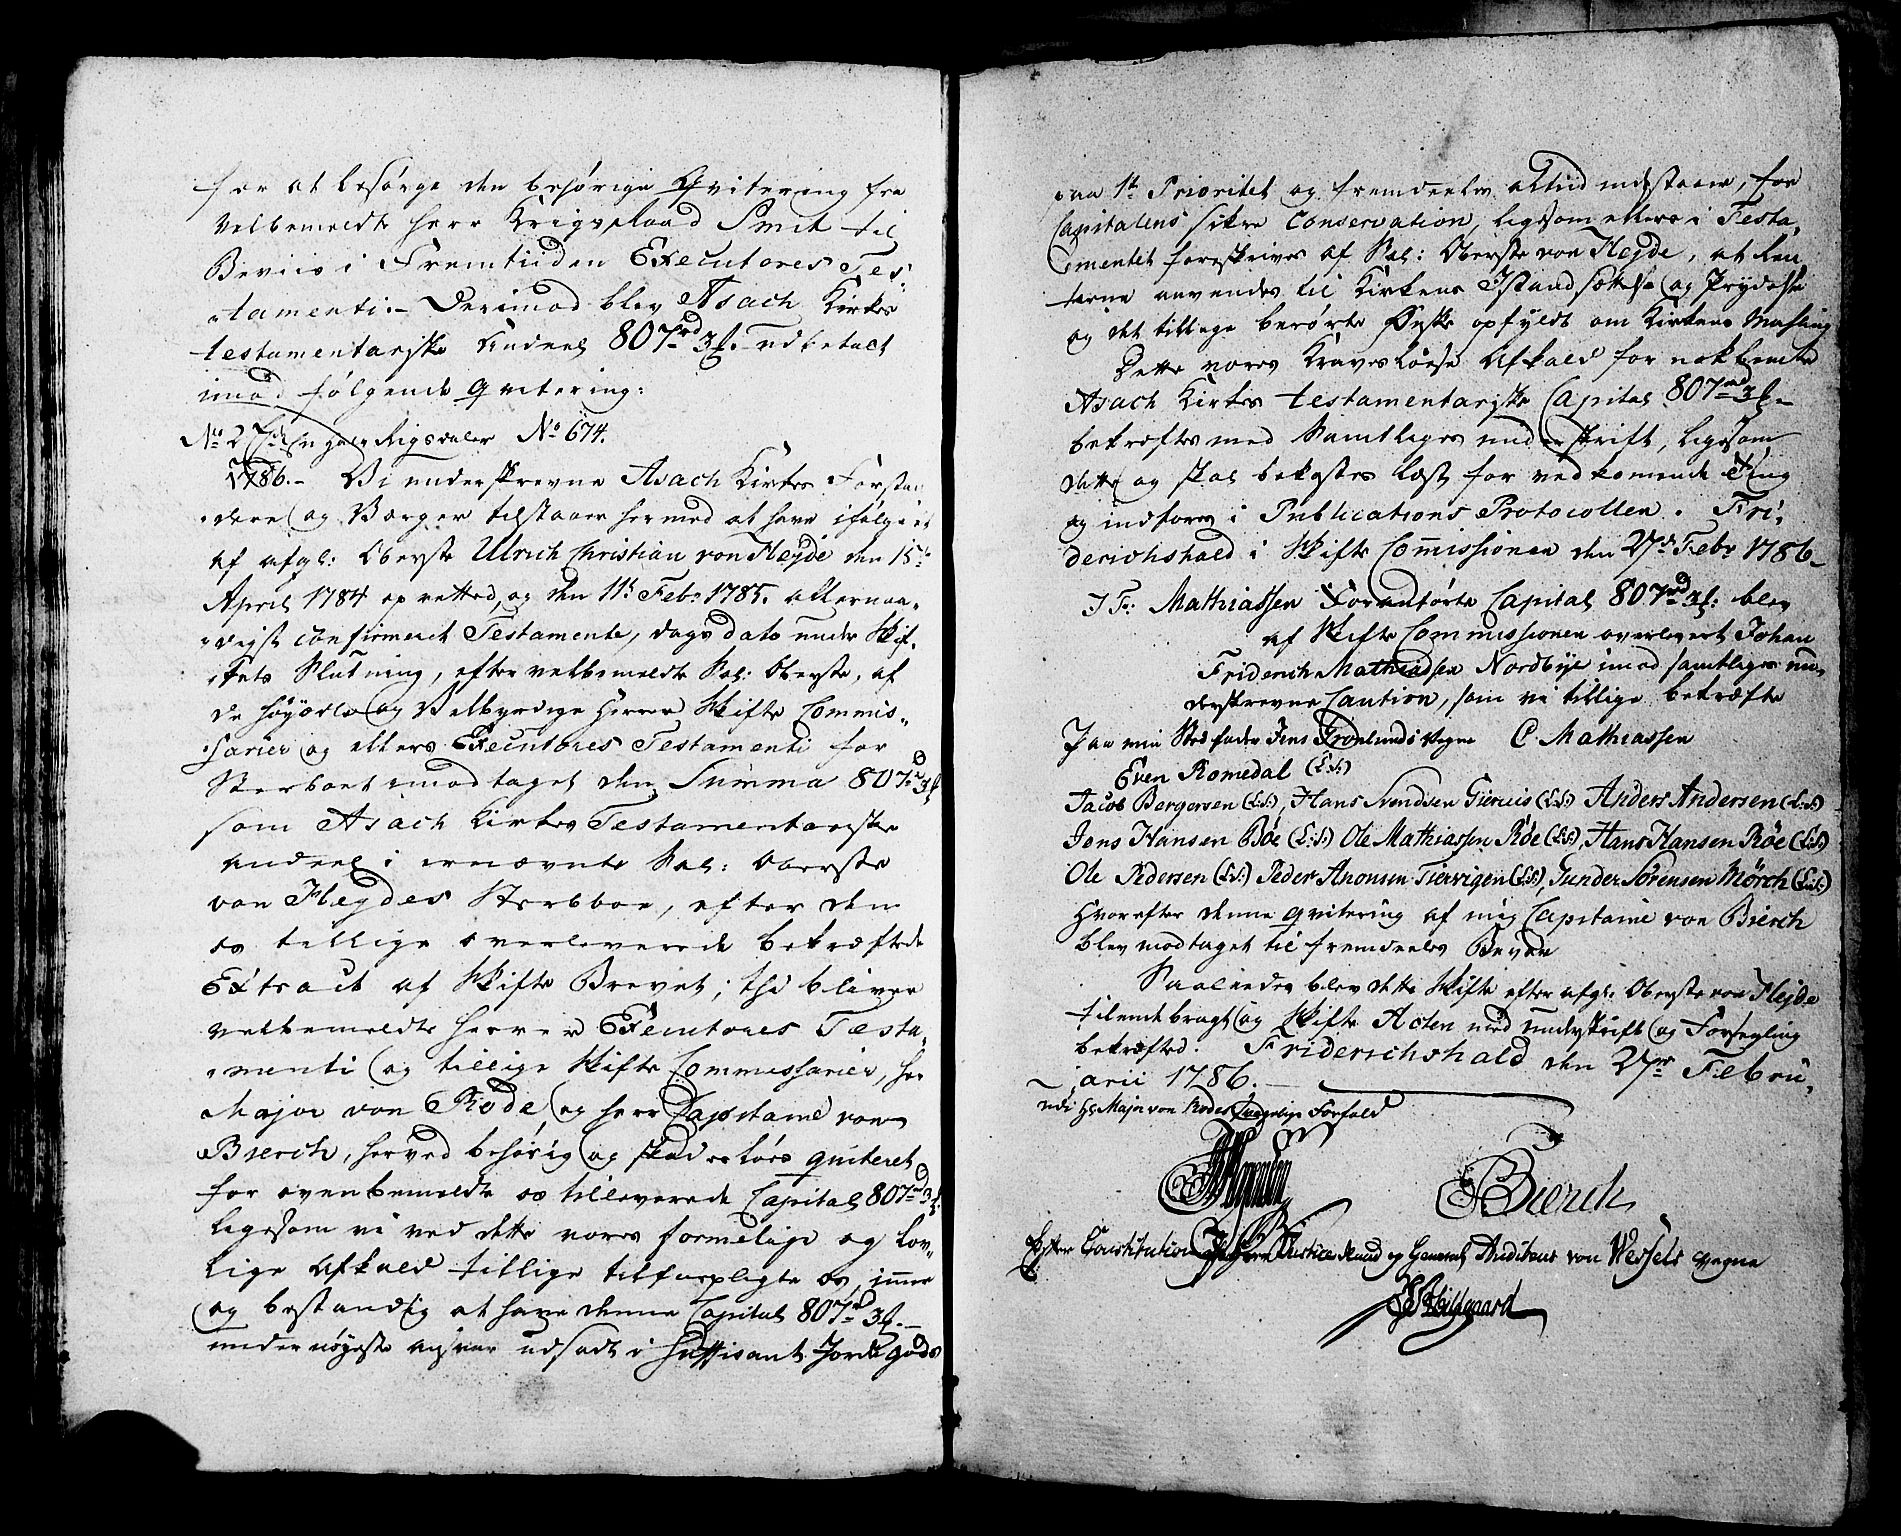 for at besørge den behørige Qvitering fra
Velbemeldte Herr Krigsraad Smit til
Beviis i Fremtiiden Executores Tes„
„tamenti. – Derimod blev Asach Kirkes
testamentariske Andeel 807rd 3s. udbetalt
imod følgende Qvitering:
No 2 En halv Rigsdaler No 674.
1786. – Vi underskrevne Asach Kirkes Forstan„
„dere og Værger tilstaaer hermed at have ifølge et
af afgl: Oberste Ulrich Christian von Hejde den 15de
April 1784 opretted, og den 11te Febr 1785. allernaa„
„digst confirmeret Testamente, dags dato under Skif„
„tets Slutning, efter velbemeldte Sal: Oberste, af
de høyædle og Velbyrdige Herrer Skifte Commis„
„sarier og ellers Executores Testamenti for
Sterboet imodtaget den Summa 807rd 3s
som Asach Kirkes Testamentariske
Andeel i ernævnte Sal: Oberste
von Hejdes Sterbboe, efter den
os tillige overleverede bekræftede
Extract af Skifte Brevet; thi bliver
velbemeldte Herrer Executores Testa„
„menti og tillige Skifte Commissarier, Her
Major von Rode og Herr Capitaine von
Bierch, herved behørig og skadesløs qviteret
for ovenbemeldte os tilleverede Capital 807rd 3s.
ligesom vi ved dette vores formelige og lov„
lige Afkald tillige tilforpligte os, immer
og bestandig at have denne Capital 807rd 3s. –
under nøyeste ansvar udsadt i Suffisant Jorde gods
paa 1te Prioritet og fremdeeles altiid indestaaer, for
Capitalens sikre Conservation, ligesom ellers i Testa„
„mentet foreskrives af Sal: Oberste von Hejde, at Ren
terne anvendes til Kirkens Istandsættelse og Prydelse
og det tillige berørte Ønske opfyldt om Kirkens Musaug
Dette vores Kravesløse Afkald for nokbemeldte
Asach Kirkes testamentariske Capital 807rd 3s. –
bekræftes med Samtliges underskrift, ligesom
dette og skal bekostes læst for vedkomende Ting
og indføres i Publications Protocollen. Fri„
derichshald i Skifte Commissionen den 27de Febr 1786 –
J Fr: Mathiassen Foranførte Capital 807rd 3s: blev
af Skifte Commissionen overlevert Johan
Friderich Mathiassen Nordbye imod samtliges un„
derskrevne Caution, som vi tillige bekræfte
Paa min Stedfader Jens Gronlunds Vegne C. Mathiassen
Even Romedal (L:S:)
Jacob Børgersen (L:S:), Hans Svendsen Giervis (L:S:) Anders Andersen (L:S:)
Jens Hansen Bøe (L:S:) Ole Mathiassen Røe (L:S:), Hans Hansen Røe (L:S:)
Ole Pedersen (L:S:) Peder Anonsen Tiervigen (L:S:), Gunder Sørensen Mørch (L:S:)
Hvorefter denne Qvitering af mig Capitaine von Bierch
blev modtaget til fremdeeles Beviis
Saaledes blev dette Skifte efter afgl: Oberste von Hejde
tilendebragt og Skifte Acten med underskrift og Forsegling
bekræfted. Friderichshald den 27de Febru„
„arii 1786. –
udi Hr Major von Rodes lovlige Forfald
Bierch
Efter Constitution paa Herr Justice Raad og General Auditeur von Wessels vegne
Hildgaard